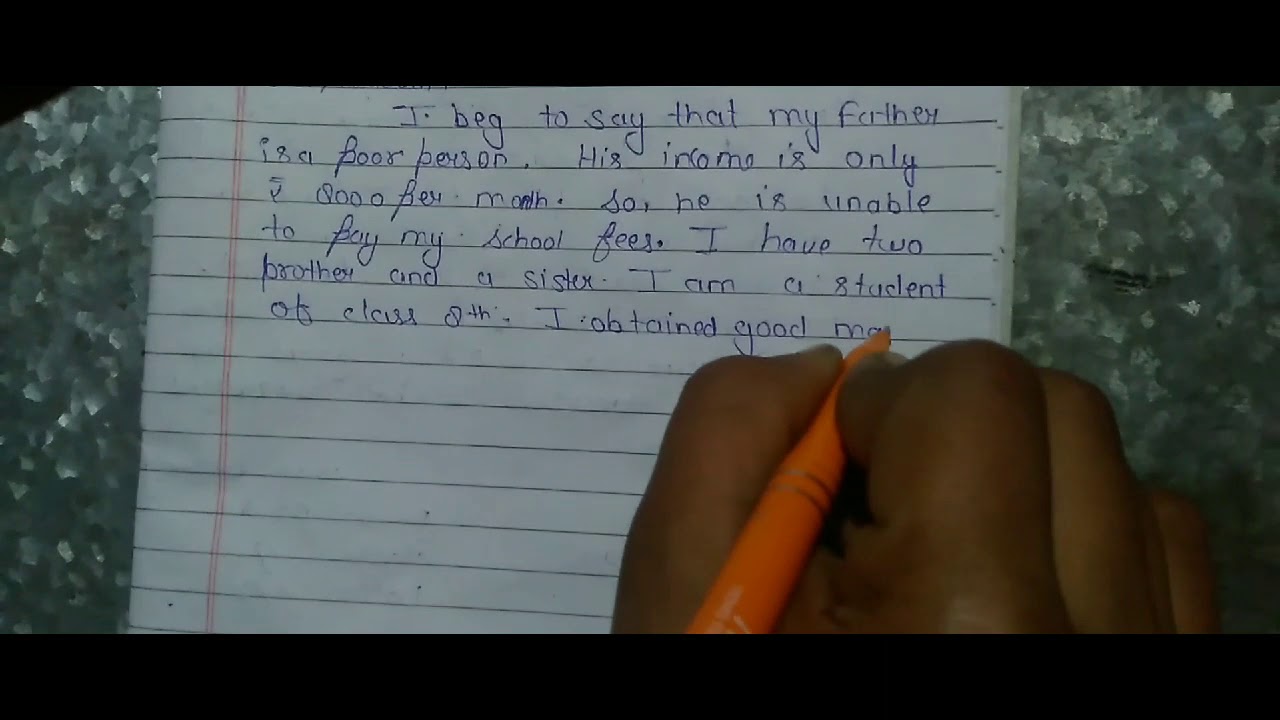 I. beg to say that my father
is a poor person. His income is only
₹ 8000 per month. So, he is unable
to pay my school fees. I have two
brother and a sister. I am a student
of class 8th. I obtained good ma